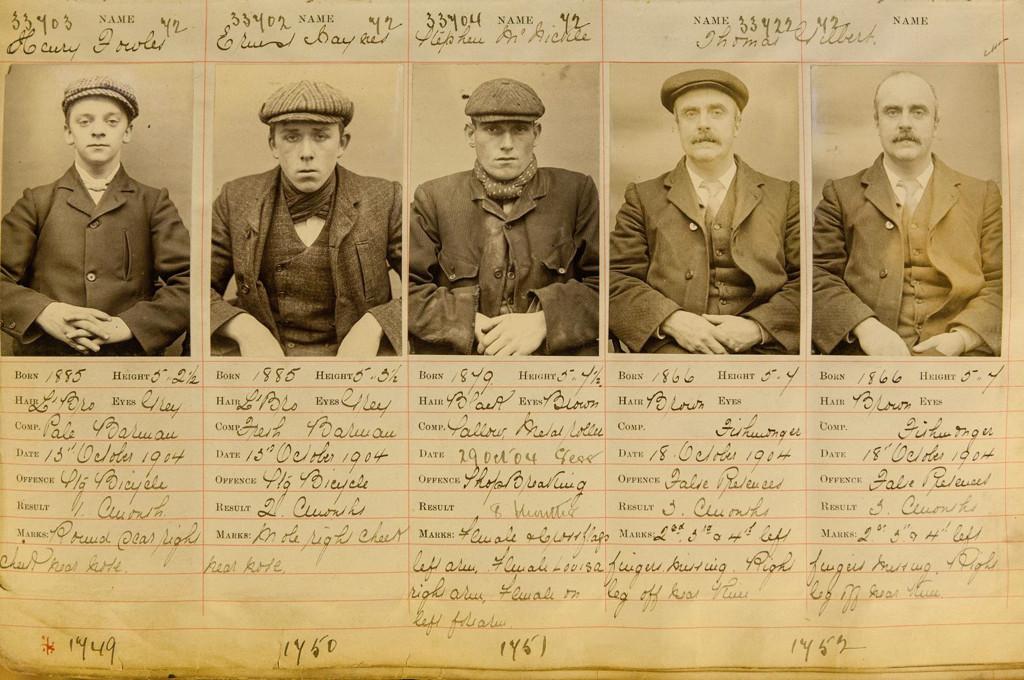 33703 NAME 72
Henry Fowler
BORN 1885 HEIGHT 5-2½
HAIR Lt Bro EYES Grey
COMP. Pale Barman
DATE 15th October 1904
OFFENCE Stg Bicycle
RESULT 1. month
MARKS: Round scar right
cheek near nose.
* 1749
33702 NAME 72
Ernest Haynes
BORN 1885 HEIGHT 5-3½
HAIR Lt Bro EYES Grey
COMP. Fresh Barman
DATE 15th October 1904
OFFENCE Stg Bicycle
RESULT 2. months
MARKS: Mole right cheek
near nose.
1750
33704 NAME 72
Stephen
BORN 1879 HEIGHT 5-7½
HAIR Black EYES Brown
COMP. Sallow Metal roller
DATE 29 Oct 04
OFFENCE Shop Breaking
RESULT 8 months
MARKS: Female & Cross flags
left arm, Female Louisa
right arm, Female on
left forearm.
1751
NAME 33722 72
Thomas
BORN 1866 HEIGHT 5-4
HAIR Brown EYES
COMP. Fishmonger
DATE 18th October 1904
OFFENCE False Pretences
RESULT 3. months
MARKS: 2nd 3rd & 4th left
fingers missing. Right
leg off near knee
NAME
BORN 1866 HEIGHT 5-4
HAIR Brown EYES
COMP. Fishmonger
DATE 18th October 1904
OFFENCE False Pretences
RESULT 3. months
MARKS: 2nd 3rd & 4th left
fingers missing. Right
leg off near knee.
1752